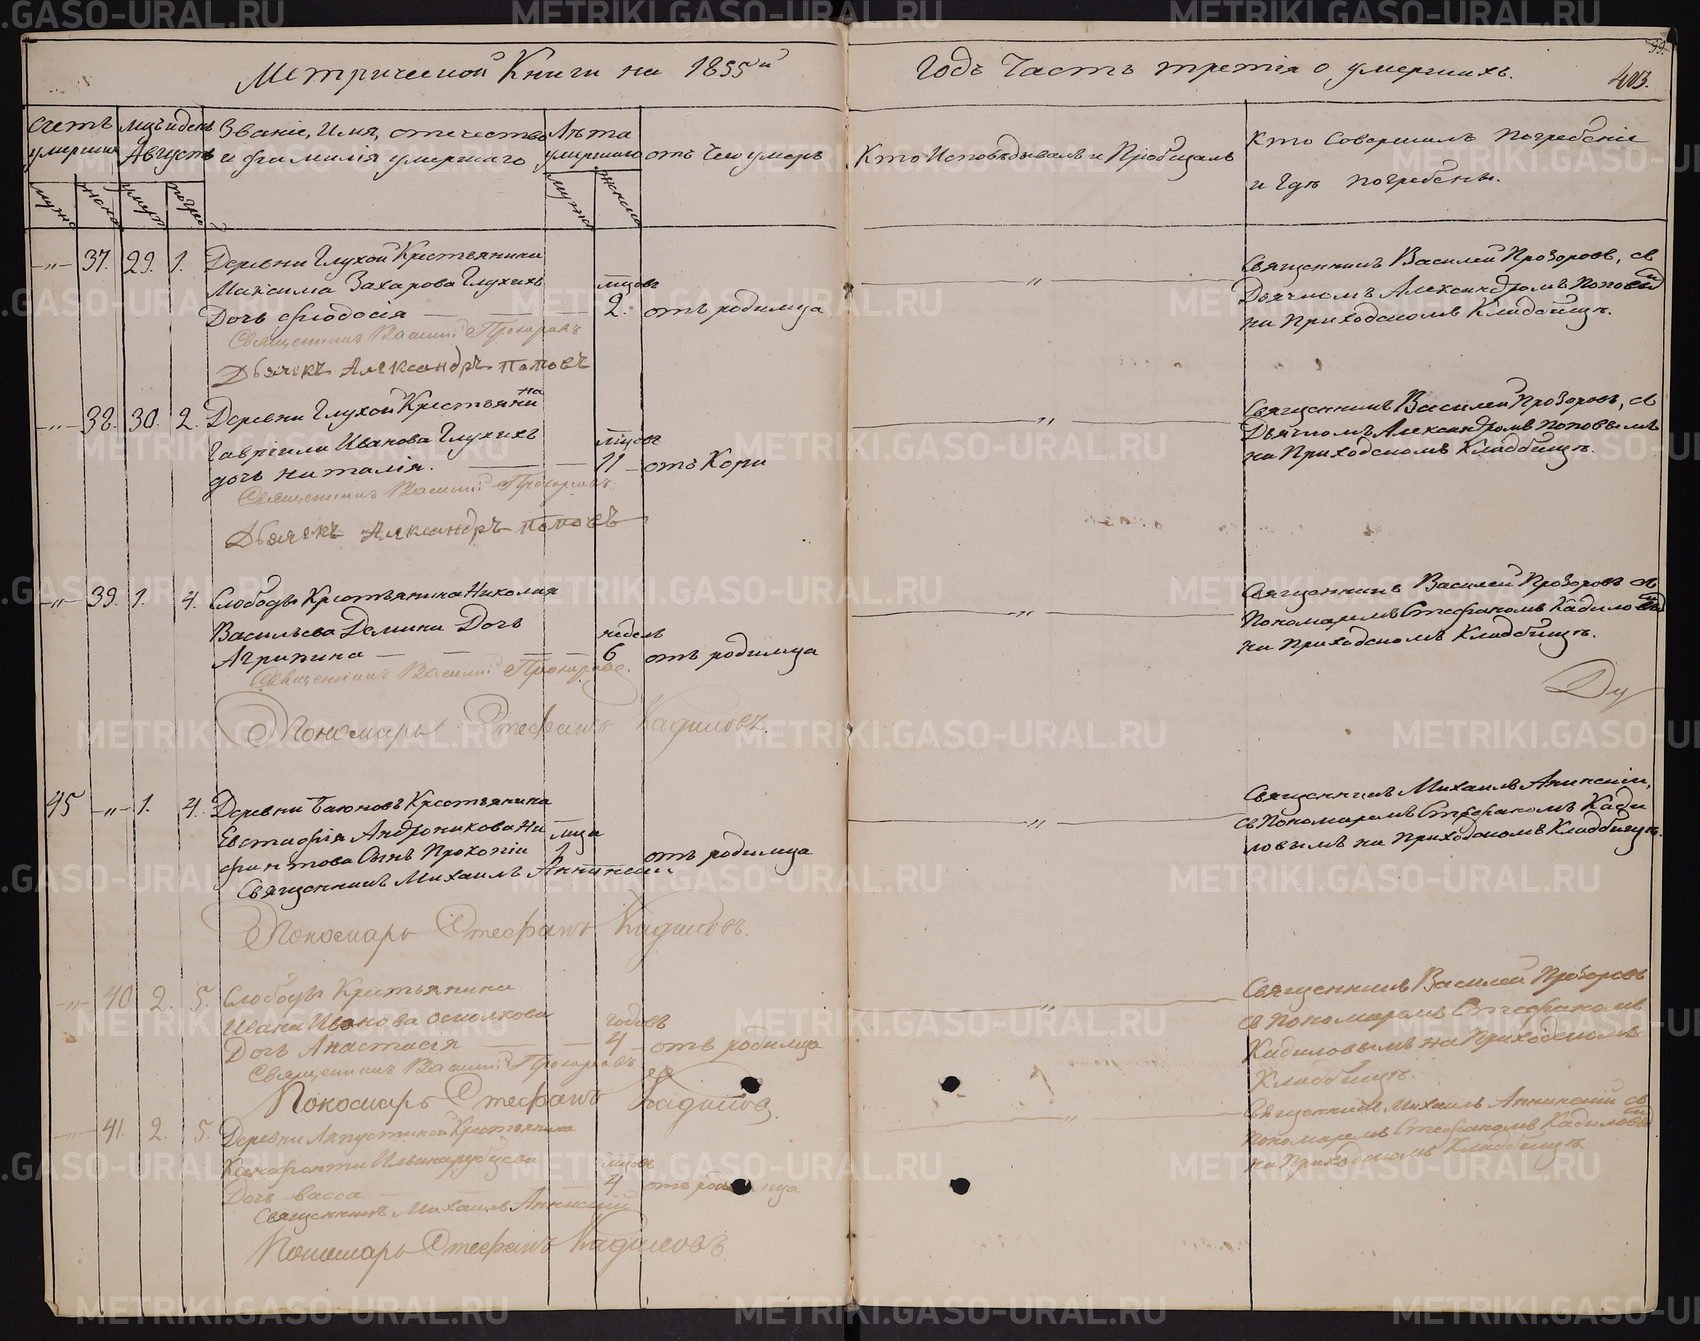 Метрической Книги на 1855й
Годъ Часть третія о умершихъ.
59.
403.
счетъ умершихъ
Мцъ и день Августъ
Званіе, Имя, отечество
и фамилія умершаго
Лѣта умершаго
отъ чего умеръ
Кто Исповѣдывалъ и Пробщалъ
Кто Совершалъ Погребеніе
и Гдѣ погребены.
муж.
женск.
умер.
погр.
муж.
женск.
-„- 37. 29. 1. Деревни Глухой Крестьянина
Максима Захарова Глухихъ мцовъ
Дочь Феодосія 2. отъ родимца
Священникъ Василій Прозоровъ
Дьячекъ Александръ Поповъ
„
Священникъ Василей Прозоровъ, съ
Дьячкомъ Александромъ Поповымъ
на Приходскомъ Кладбищѣ.
-„- 38. 30. 2. Деревни Глухой Крестьянина
Гавріила Иванова Глухихъ мцовъ
дочь Наталія. 11 отъ Кори
Священникъ Василій Прозоровъ.
Дьячекъ Александръ Поповъ
„
Священникъ Василей Прозоровъ, съ
Дьячкомъ Александромъ Поповымъ
на Приходскомъ Кладбищѣ.
-„- 39. 1. 4. Слободы Крестьянина Николая
Васильева Демина Дочь недель
Агрипина 6 отъ родимца
Священникъ Василій Прозоровъ.
Пономарь Стефанъ Кадиловъ.
„
Священникъ Василей Прозоровъ съ
Пономаремъ Стефаномъ Кадиловымъ
на Приходскомъ Кладбищѣ.
Ду
45 -„- 1. 4. Деревни Крестьянина
Евстафія Андроникова Ни мца
фантова Сынъ Прокопій 2 отъ родимца
Священникъ Михаилъ Аннинскій.
Пономарь Стефанъ Кадиловъ.
„
Священникъ Михаилъ Анинскій,
съ Пономаремъ Стефаномъ Кади
ловымъ на Приходскомъ Кладбищѣ.
-„- 40 2. 5. Слободы Крестьянина
Ивана Иванова Осколкова годовъ
Дочь Анастасія 4 отъ родимца
Священникъ Василій Прозоровъ
Пономарь Стефанъ Кадиловъ
„
Священникъ Василей Прозоровъ
съ Пономаремъ Стефаномъ
Кадиловымъ на Приходскомъ
Кладбищѣ.
-„- 41. 2. 5. Деревни Крестьянина
мцовъ
Дочь Васса 4 отъ родимца
Священникъ Михаилъ Аннинскій
Пономарь Стефанъ Кадиловъ.
„
Священникъ Михаилъ Аннинскій съ
Пономаремъ Стефаномъ Кадиловымъ
на Приходскомъ Кладбищѣ.
METRIKI.GASO-URAL.RU